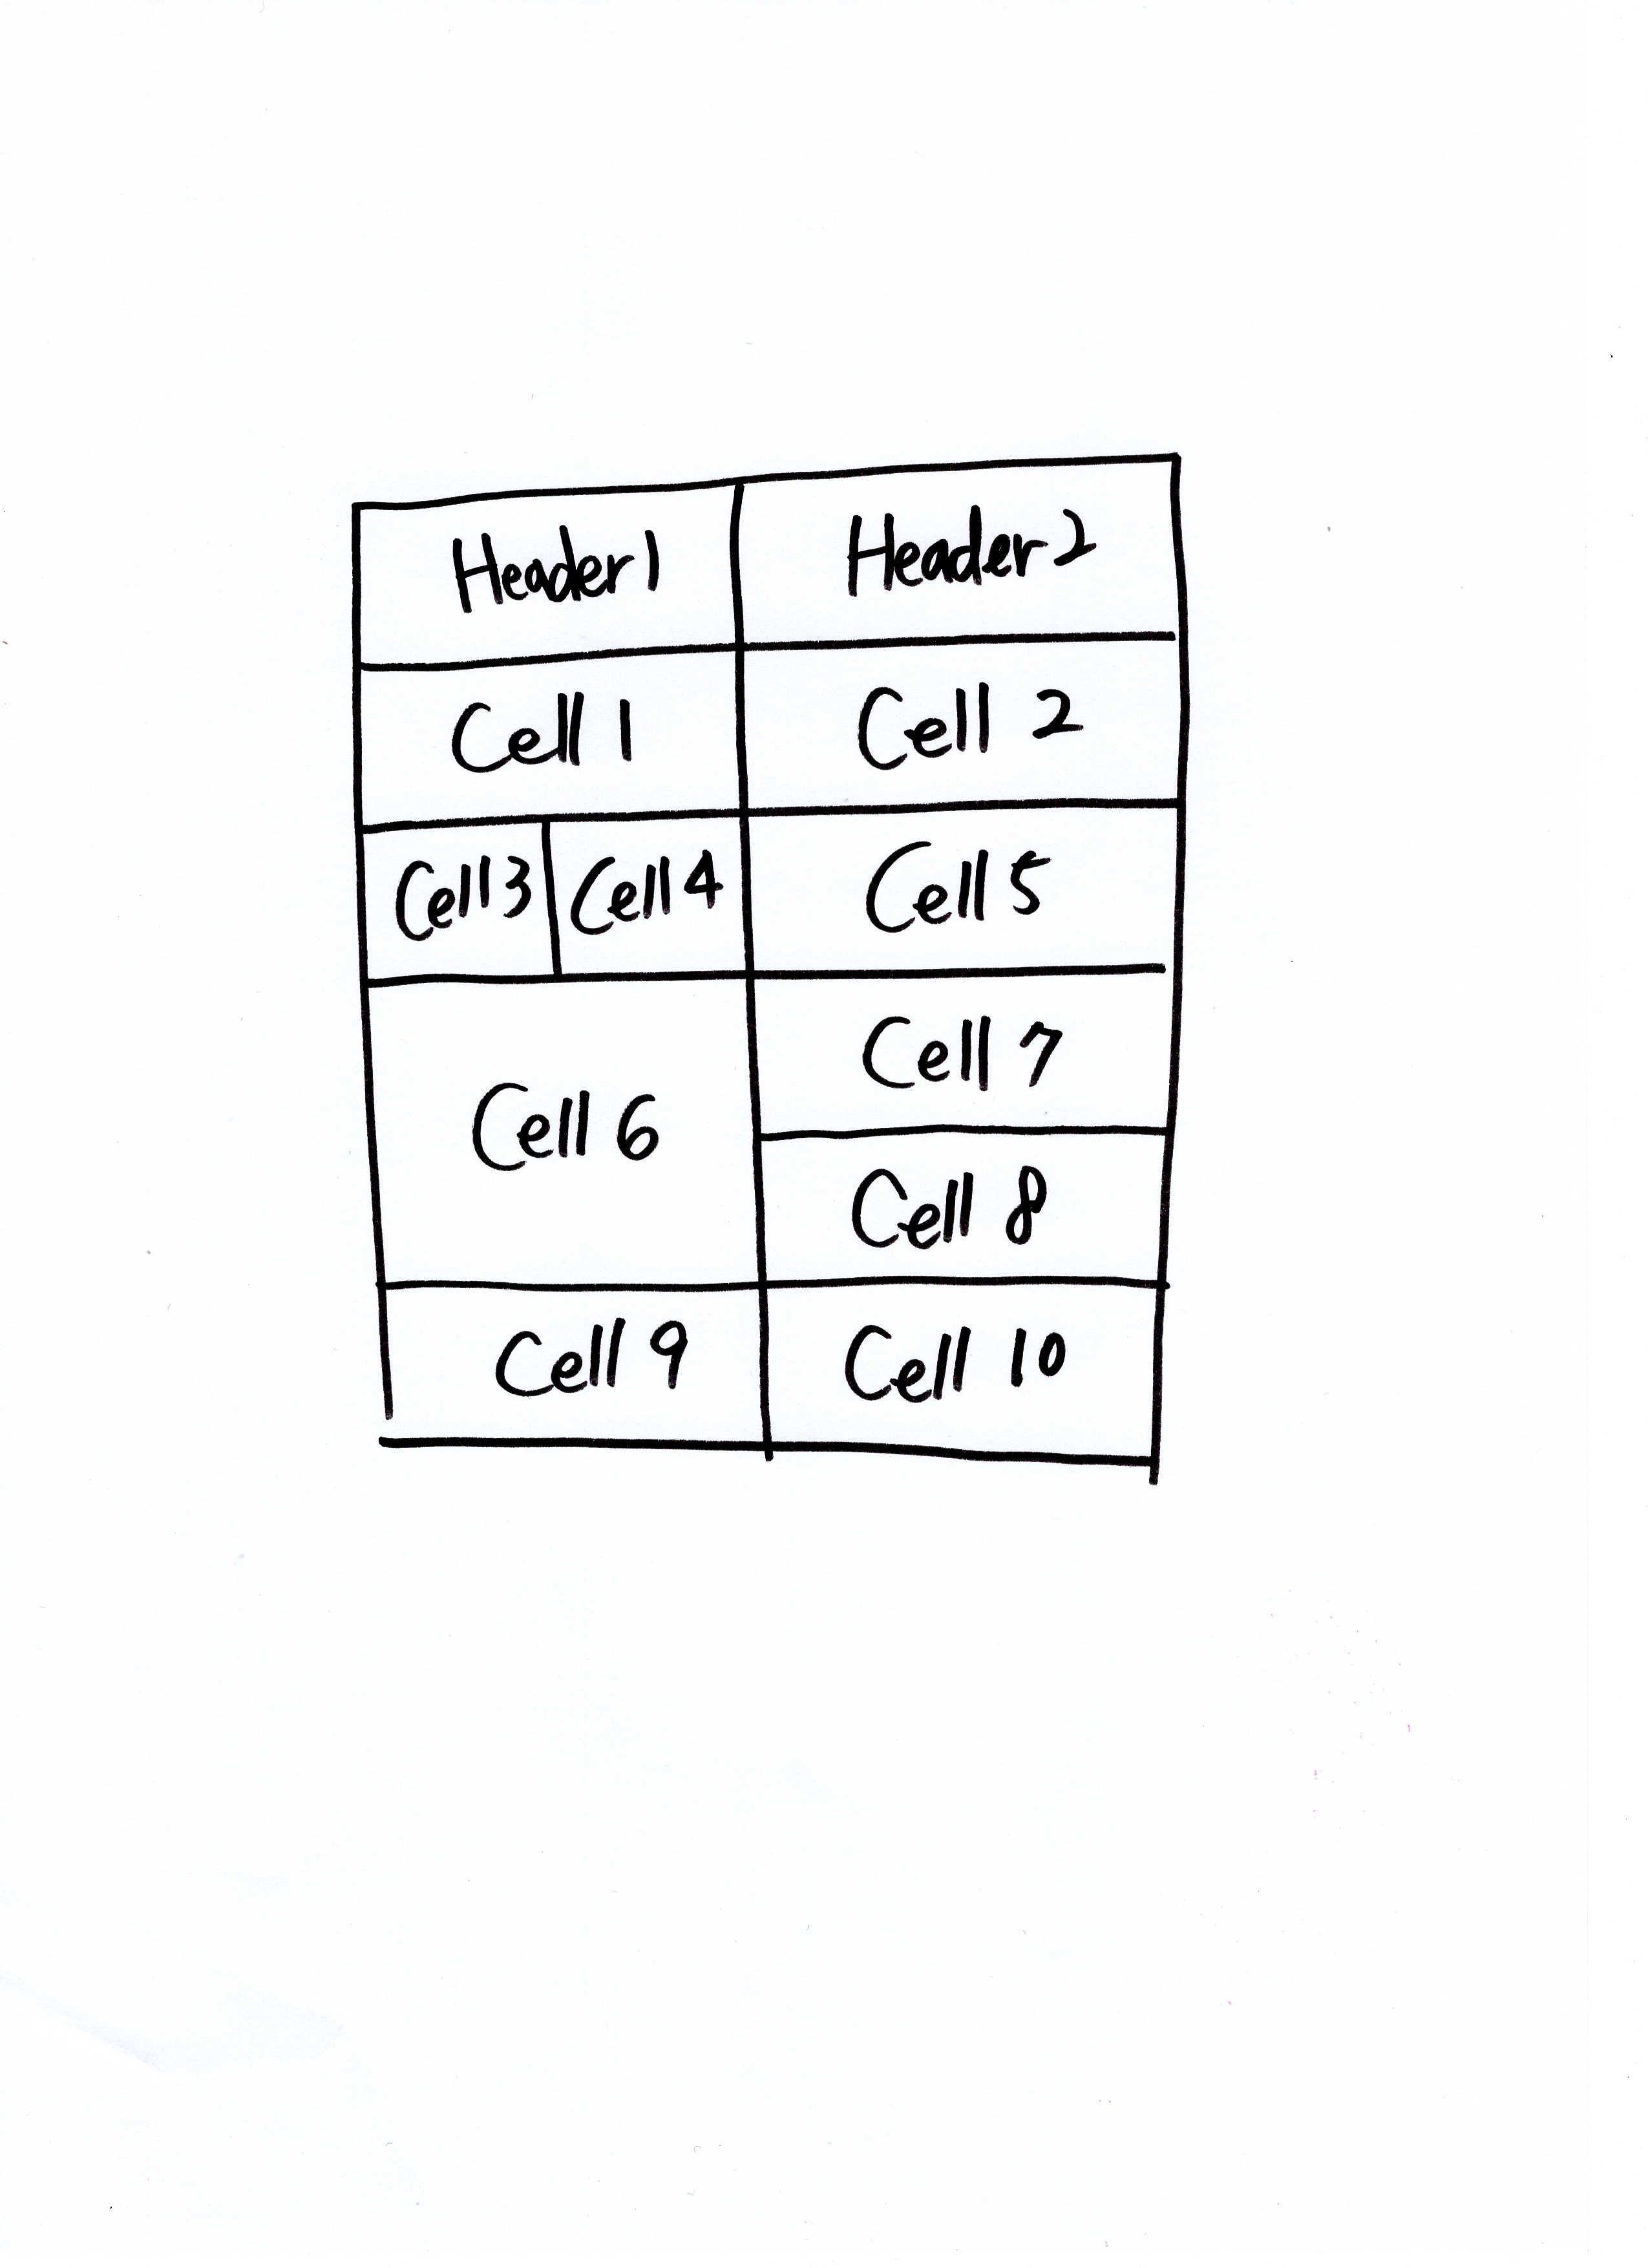 Header 1 Header 2
Cell 1 Cell 2
Cell 3 Cell 4 Cell 5
Cell 6
Cell 7
Cell 8
Cell 9 Cell 10